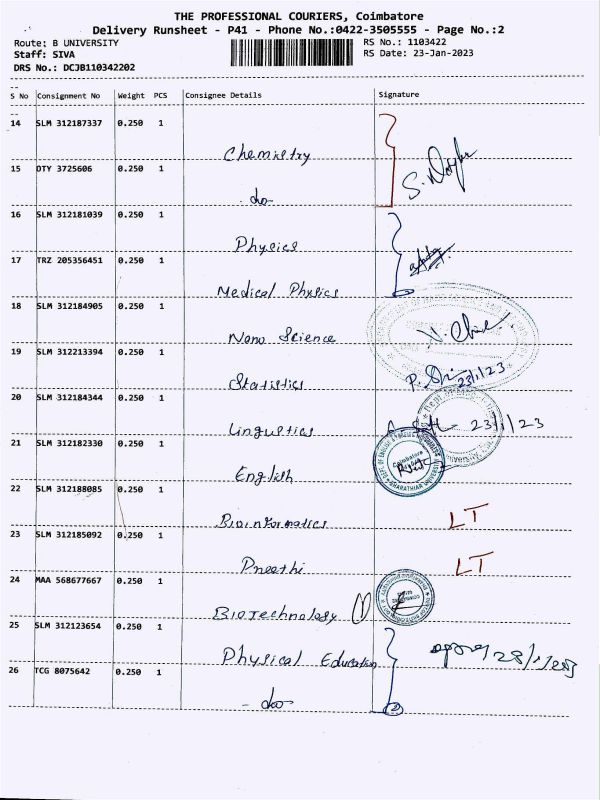 THE PROFESSIONAL COURIERS, Coimbatore
Delivery Runsheet - P41 - Phone No.:0422-3505555 - Page No.:2
Route: B UNIVERSITY
RS No.: 1103422
Staff: SIVA
RS Date: 23-Jan-2023
DRS No.: DCJB110342202
S No Consignment No Weight PCS Consignee Details Signature
14 SLM 312187337 0.250 1
Chemistry
15 OTY 3725606 0.250 1
- do -
16 SLM 312181039 0.250 1
Physics
17 TRZ 205356451 0.250 1
Medical Physics
18 SLM 312184905 0.250 1
Nano Science
19 SLM 312213394 0.250 1
Statistics 23/1/23
20 SLM 312184344 0.250 1
Linguetics 23/1/23
21 SLM 312182330 0.250 1
English
22 SLM 312188085 0.250 1
Bioinformatics LT
23 SLM 312185092 0.250 1
Preethi LT
24 MAA 568677667 0.250 1
Biotechnology (1)
25 SLM 312123654 0.250 1
Physical Education
26 TCG 8075642 0.250 1
- do - 2